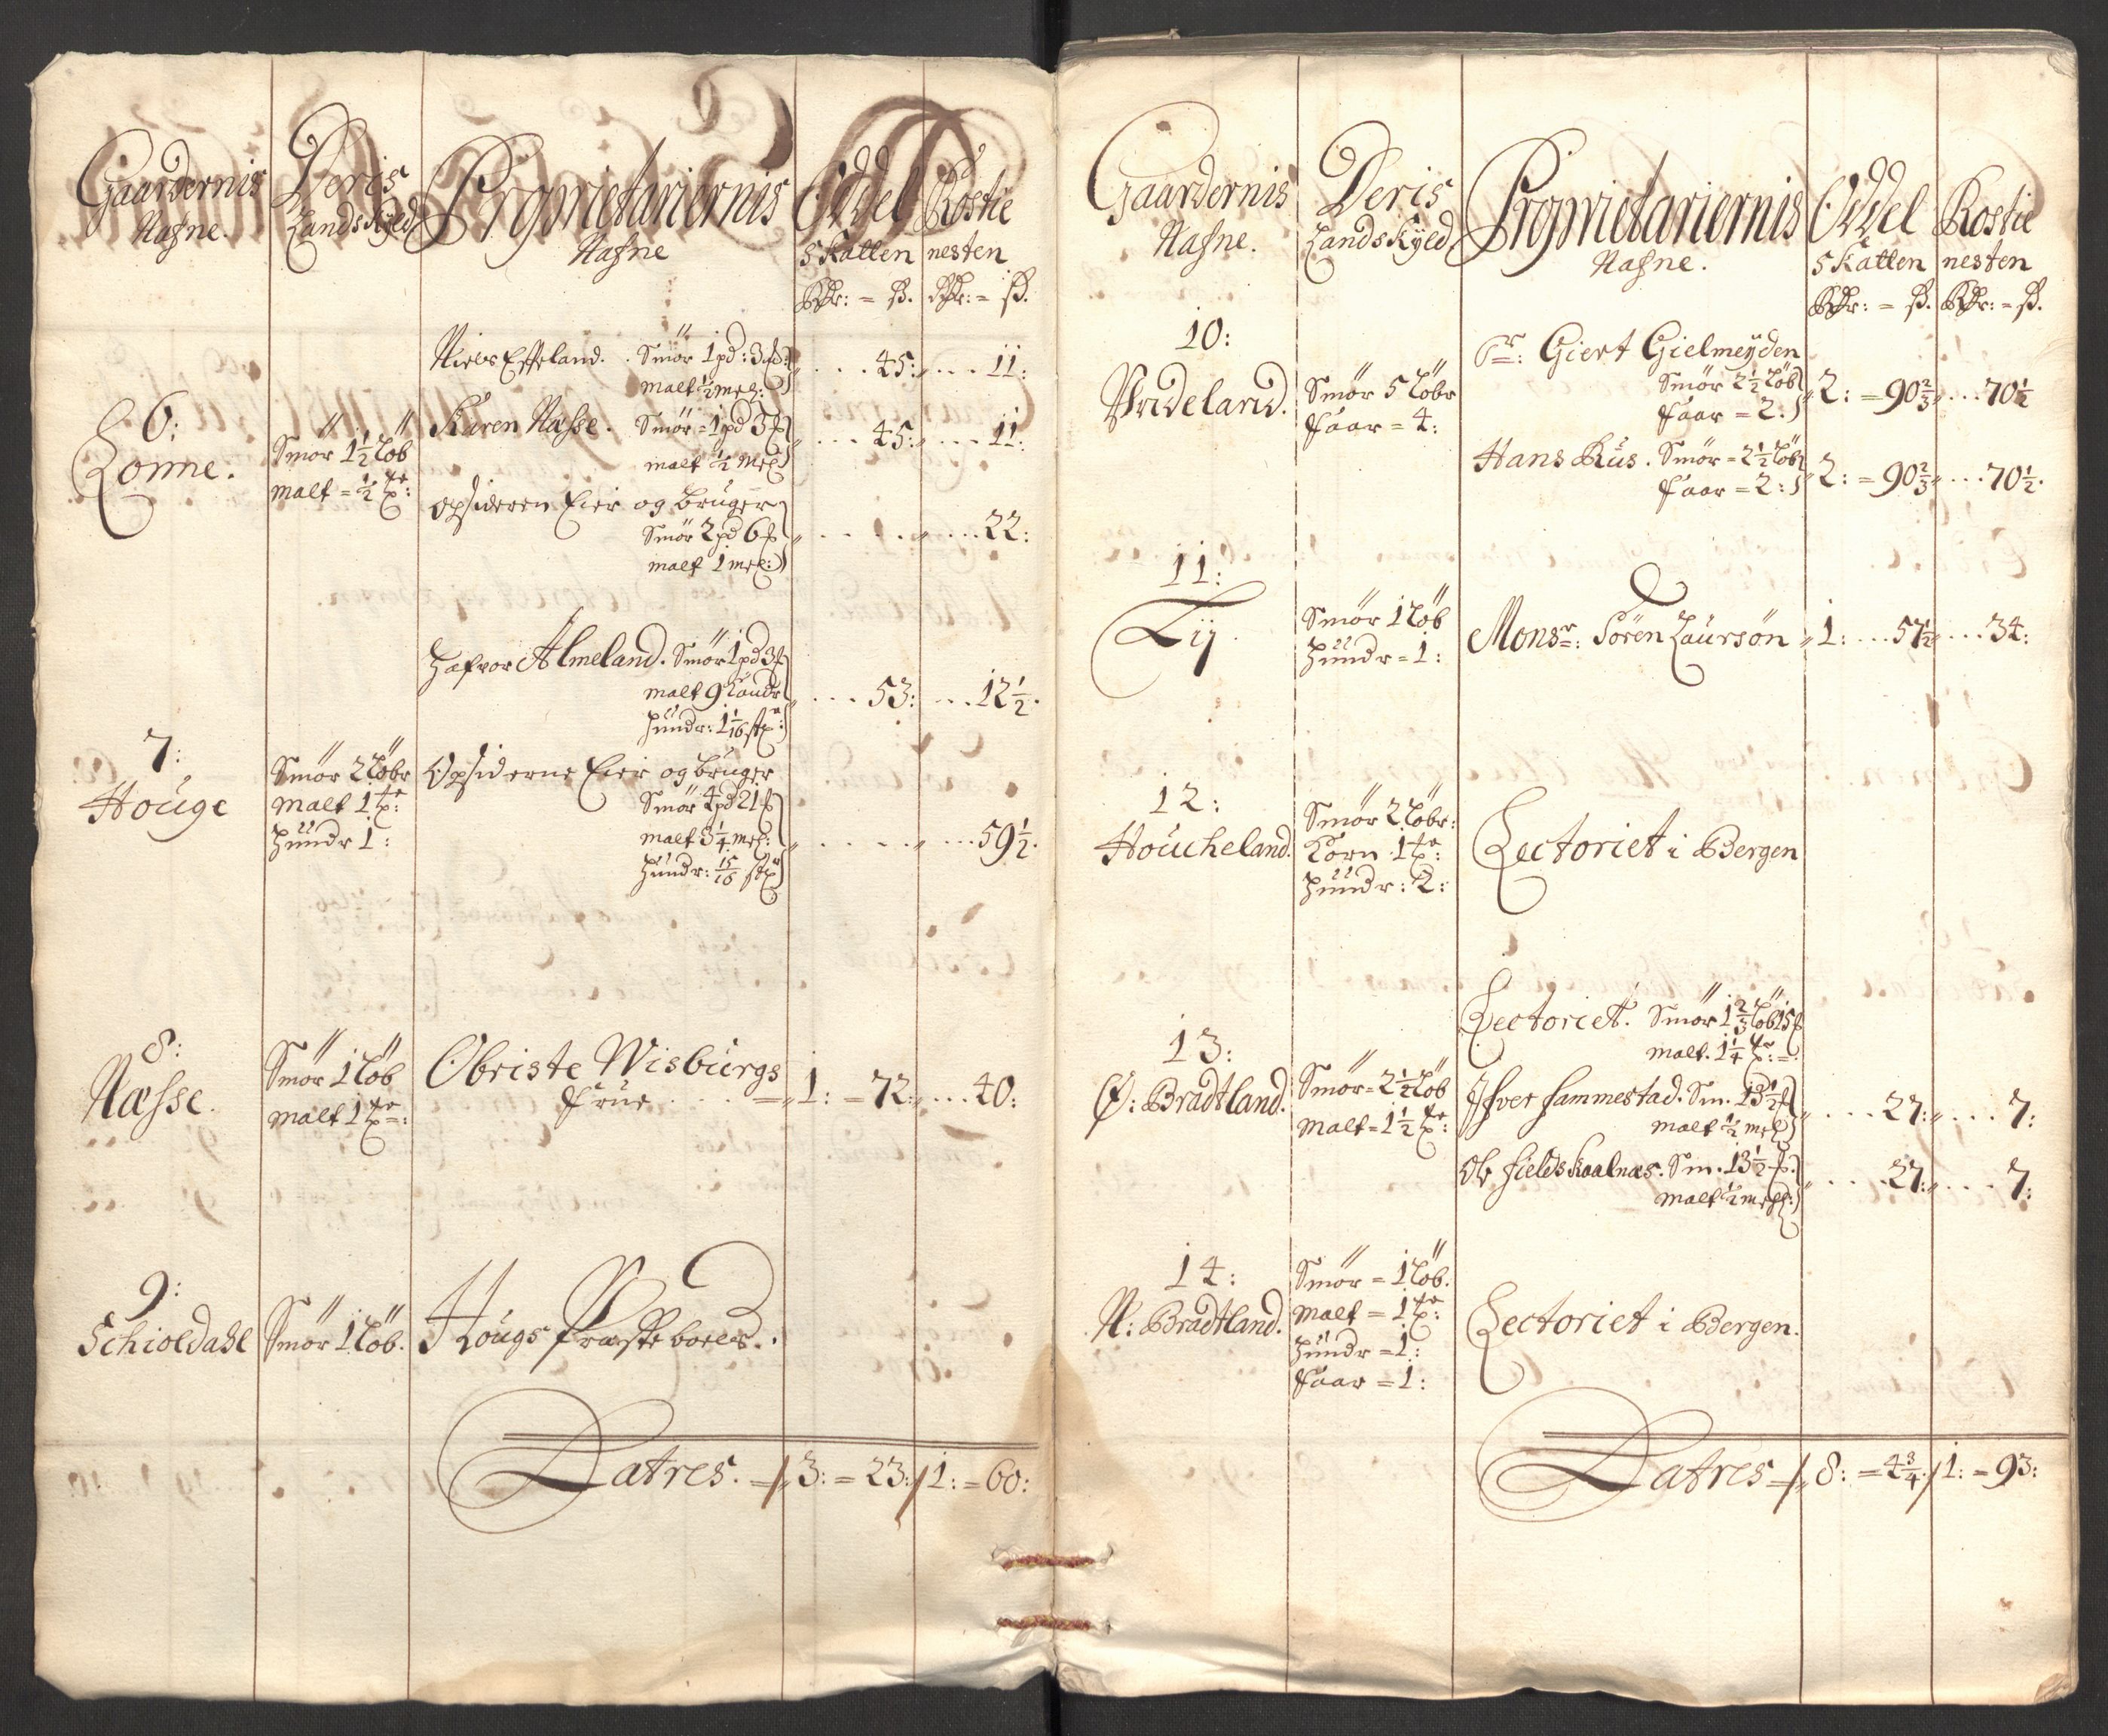 Gaardernis Nafne.
Deris Landskyld
Proprietariernis Nafne
Oddel skatten
Rostie nesten
Rdr: = ß. Rdr: = ß.
Niels Esseland. Smör 1 pd: 3 
malt ½ mel: . . . 45: . . . 11:
6:
Lonne.
Smör 1½ löb
malt = ½ 
Karen Næsse. Smör = 1 pd 3
malt ½ mel . . . 45: . . . 11:
opsideren Eier og bruger
Smör 2 pd 6
malt 1 mel: . . . . . . . 22:
Hafvor Almeland. Smör 1 pd 3
malt 9 
hüudr: 1 1/16 . . . 53: . . . 12½.
7:
Houge
Smör 2 löbr
malt 1 
hüudr 1:
Opsiderne Eier og bruger
Smör 4 pd 21
malt 3¼ mel:
hüudr: 15/16 . . . . . . . 59½.
8:
Næsse.
Smör 1 löb
malt 1 
Obriste Wisburgs
frue . . . = 1: = 72: . . . 40:
9:
Schioldahl
Smör 1 löb.
Hougs præste boels.
Latres. = 3: = 23: 1: = 60:
Gaardernis Nafne.
Deris Landskyld
Proprietariernis Nafne.
Oddel skatten
Rostie nesten
Rdr: = ß. Rdr: = ß.
10:
Smör 5 löbr
faar = 4:
Sr: Giert Gielmeyden
Smör 2½ löb
faar = 2: 2: = 90⅔ . . . 70½
Hans Kus. Smör = 2½ löb
faar = 2: 2: = 90⅔ . . . 70½.
11:
Lij.
Smör 1 löb
hüudr = 1:
Monsr: Sören Laursön 1: . . . 57½ . . . 34:
12:
Houcheland.
Smör 2 löbr:
Korn 1 
hüudr: 2:
Lectoriet i Bergen
13:
Ø: Bradtland.
Smör = 2½ löb
malt = 1½ 
Lectoriet. Smör 1⅔ löb 15
malt. 1¼ 
Ifver sammestad. Sm. 13½
malt ½ mel . . . 27: . . . 7:
Ole fieldskaalnæs. Sm. 13½
malt ½ mel: . . . 27: . . . 7:
14:
N: Bradtland.
Smör = 1 löb.
malt = 1 
hüudr = 1:
faar = 1:
Lectoriet i Bergen.
Latres = 8: = 4¾. 1: = 93: